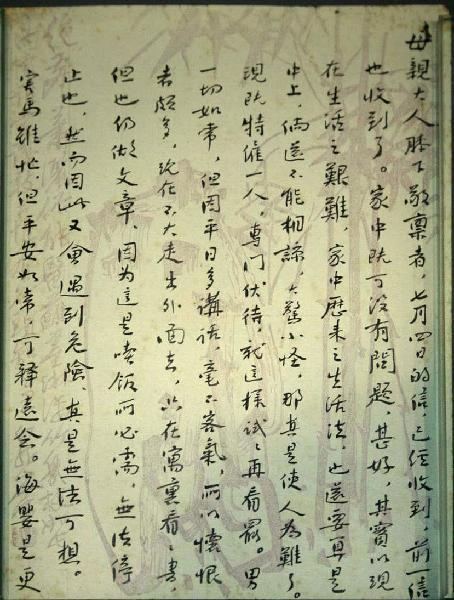 母親大人膝下敬稟者，七月四日的信，已經收到，前一信
也收到了。家中既可没有問題，甚好，其實以現
在生活之艱難，家中歷来之生活法，也還要算是
中上，倘還不能相諒，大驚小怪，那真是使人為難了。
現既特僱一人，專門伏待，就這様試試再看罷。男
一切如常，但因平日多講話，毫不客氣，所以懷恨
者頗多，現在不大走出外面去，只在寓裏看看書，
但也仍做文章，因为這是吃飯所必需，無法停
止也，然而因此又會遇到危險，真是無法可想。
害馬雖忙，但平安如常，可釋遠念。海嬰是更